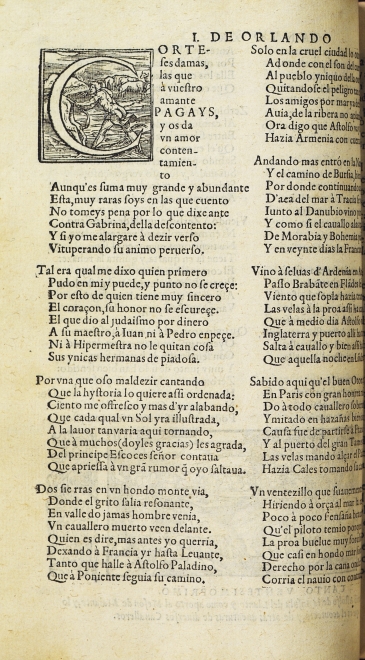 I. DE ORLANDO
CORTE-
ses damas,
las que
à vuestro
amante
PAGAYS,
y os da
vn amor
conten-
tamien-
to
Aunqu'es suma muy grande y abundante
Esta, muy raras soys en las que cuento
No tomeys pena por lo que dixe ante
Contra Gabrina, della descontento:
Y si yo me alargare à dezir verso
Vituperando su animo peruerso.
Tal era qual me dixo quien primero
Pudo en mi y puede, y punto no se creçe:
Por esto de quien tiene muy sincero
El coraçon, su honor no se escureçe.
El que dio al judaismo por dinero
A su maestro, à Iuan ni à Pedro enpeçe.
Ni à Hipermestra no le quitan cosa
Sus ynicas hermanas de piadosa.
Por vna que oso maldezir cantando
Que la hystoria lo quiere assi ordenada:
Ciento me offresco y mas d'yr alabando;
Que cada qual vn Sol yra illustrada,
A la lauor tan varia aqui tornando,
Que à muchos (doyles gracias) les agrada,
Del principe Escoces señor contaua
Que apriessa à vn grã rumor q̃ oyo saltaua.
Dos sierras en vn hondo monte via,
Donde el grito salia resonante,
En valle do jamas hombre venia,
Vn cauallero muerto veen delante.
Quien es dire, mas antes yo querria,
Dexando à Francia yr hasta Leuante,
Tanto que halle à Astolfo Paladino,
Que à Poniente seguia su camino.
Solo en la cruel ciudad lo
Adonde con el son del
Al pueblo yniquo del
Quitandose el peligro
Los amigos por mar y
Auia, de la ribera no
Ora digo que Astolfo
Hazia Armenia con
Andando mas entró en la
Y el camino de Bursia,
Por donde continuando
D'aca del mar à Tracia
Iunto al Danubio vino
Y como si el cauallo
De Morabia y Bohemia
Y en veynte dias la Franc
Vino à seluas d'Ardenia en
Passo Brabãte en Flãdes
Viento que sopla hazia
Las velas à la proa assi
Que à medio dia Astolfo
Inglaterra y puerto alli
Salta à cauallo y bien
Que aquella noche en
Sabido aqui qu'el buen Oton
En Paris con gran
Do à todo cauallero
Ymitado en hazañas
Causa fue de partirse à
Y al puerto del gran
Las velas mando alçar
Hazia Cales tomando
Vn ventezillo que suauemen
Hiriendo à orça al
Poco à poco
Qu'el piloto temio
La proa buelue muy
Que casi en hondo mar
Derecho por la
Corria el nauio con